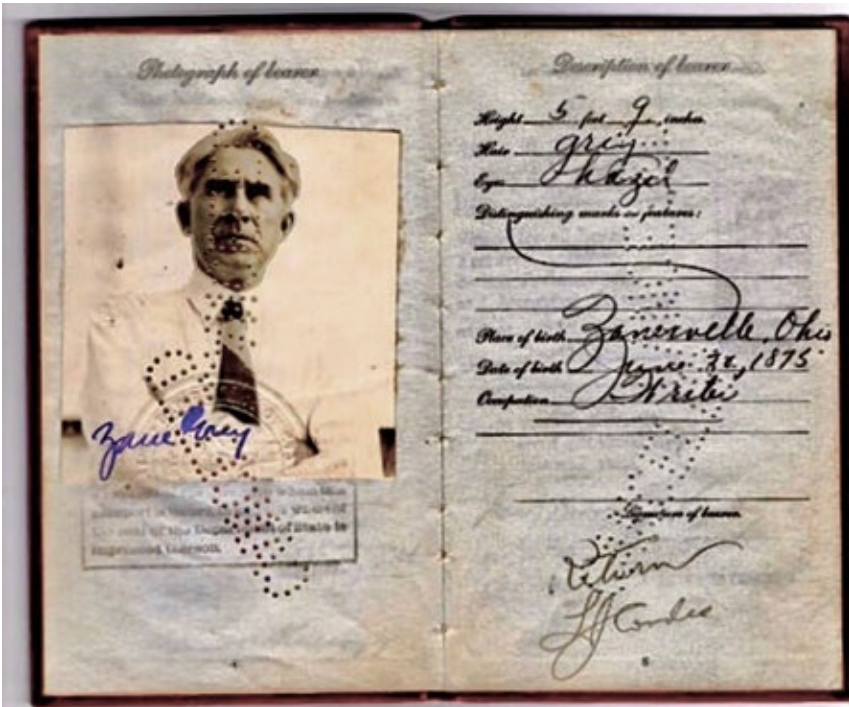 Photograph of bearer
Zane Grey
of the seal of the Department of State is
impressed thereon.
4
Description of bearer
Height 5 feet 9 inches
Hair grey
Eyes hazel
Distinguishing marks or features:
Place of birth Zanesville, Ohio
Date of birth June 1875
Occupation Writer
Signature of bearer
Return
5